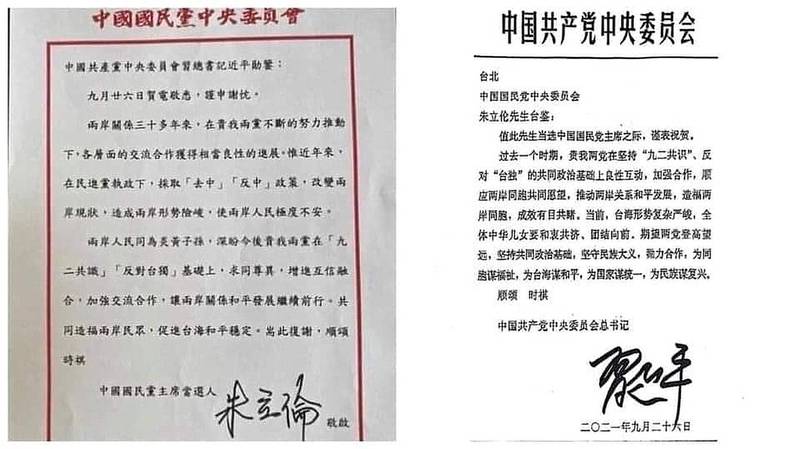 中國國民黨中央委員會
中國共產黨中央委員會習總書記近平勛鑒：
九月廿六日賀電敬悉，謹申謝忱。
兩岸關係三十多年來，在貴我兩黨不斷的努力推動
下，各層面的交流合作獲得相當良性的進展。惟近年來，
在民進黨執政下，採取「去中」「反中」政策，改變兩
岸現狀，造成兩岸形勢險峻，使兩岸人民極度不安。
兩岸人民同為炎黃子孫，深盼今後貴我兩黨在「九
二共識」「反對台獨」基礎上，求同尊異，增進互信融
合，加強交流合作，讓兩岸關係和平發展繼續前行。共
同造福兩岸民眾，促進台海和平穩定。耑此復謝，順頌
時祺
中國國民黨主席當選人
朱立倫
敬啟
中国共产党中央委员会
台北
中国国民党中央委员会
朱立伦先生台鉴：
值此先生当选中国国民党主席之际，谨表祝贺。
过去一个时期，贵我两党在坚持“九二共识”、反
对“台独”的共同政治基础上良性互动，加强合作，顺
应两岸同胞共同愿望，推动两岸关系和平发展，造福两
岸同胞，成效有目共睹。当前，台海形势复杂严峻，全
体中华儿女要和衷共济、团结向前。期望两党登高望
远，坚持共同政治基础，坚守民族大义，勠力合作，为同
胞谋福祉，为台海谋和平，为国家谋统一，为民族谋复兴。
顺颂 时祺
中国共产党中央委员会总书记
习近平
二〇二一年九月二十六日